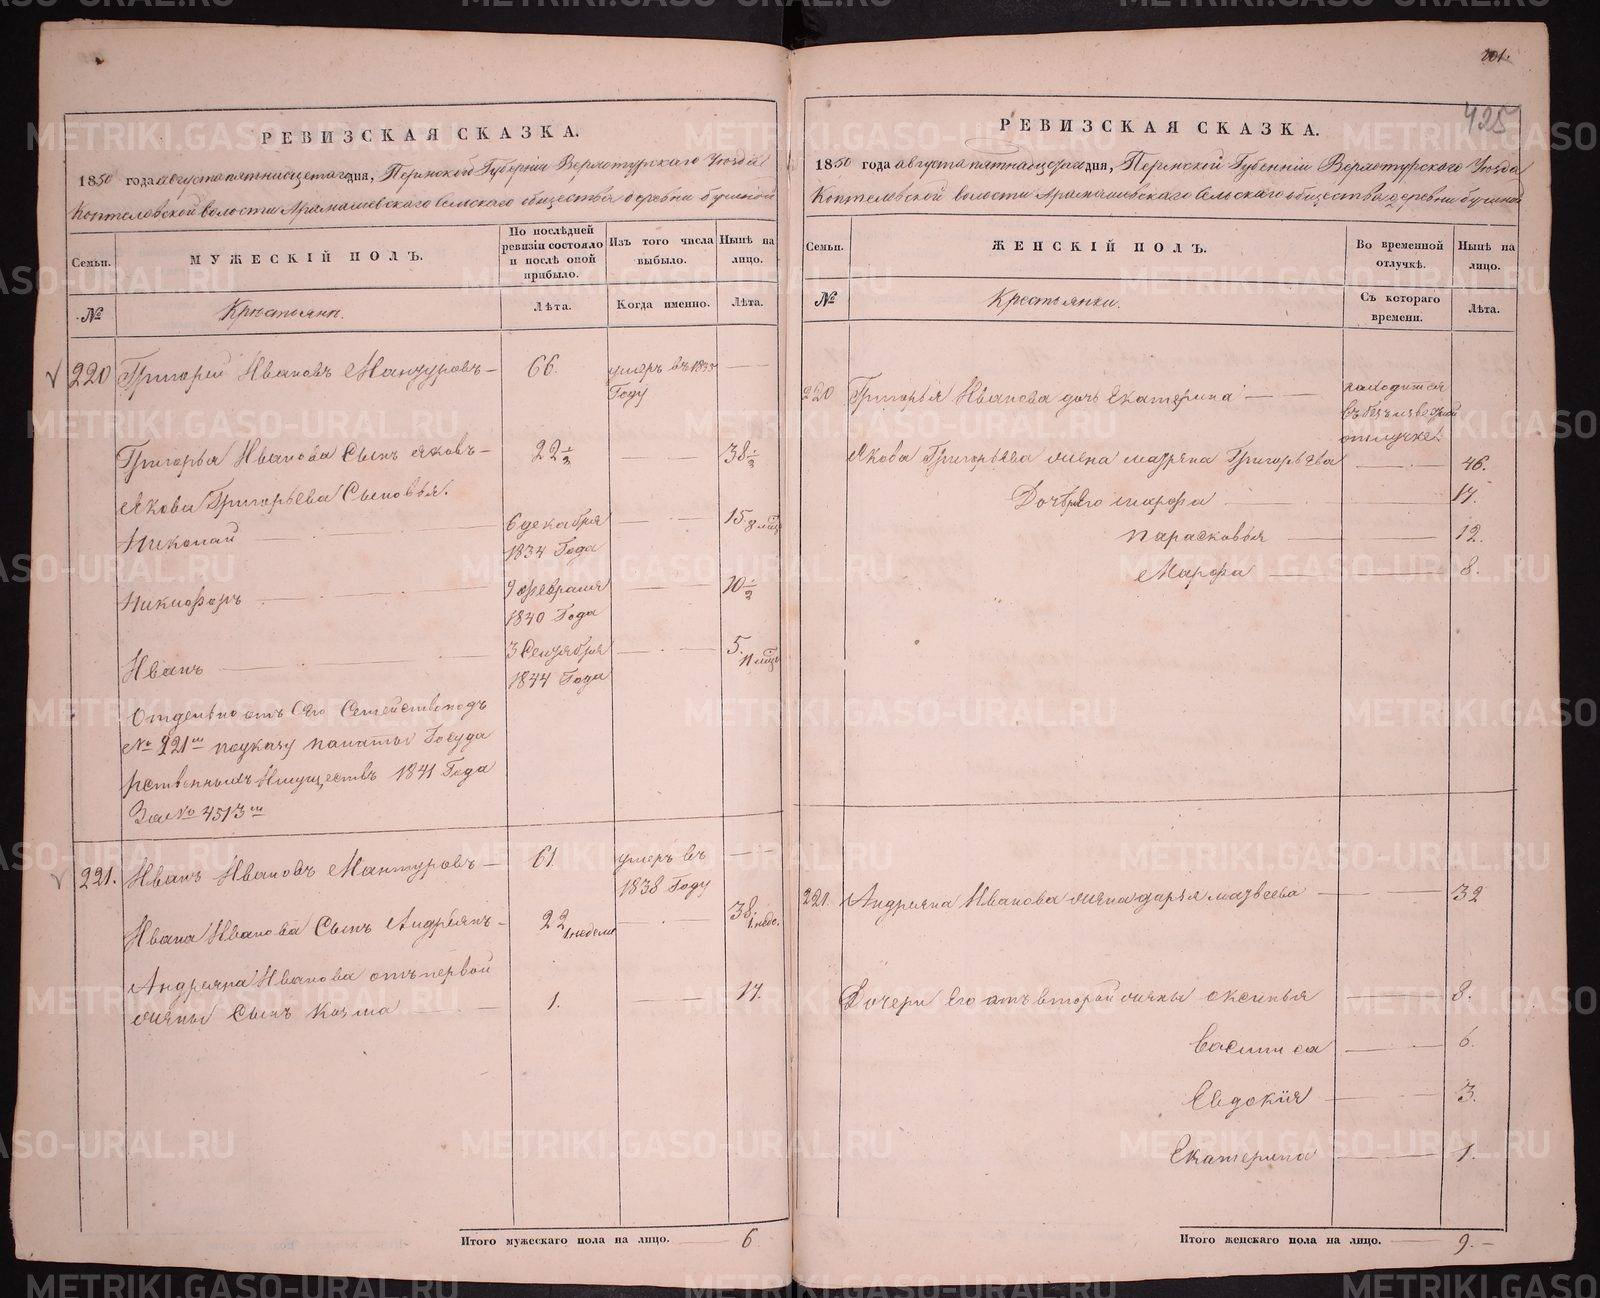 201.
425
РЕВИЗСКАЯ СКАЗКА.
1850 года августа пятнисцетаго дня, Пермской Губерніи Верхотурскаго Уезда
Коптеловской волости Арамашевскаго Сельскаго общества деревни бучиной
Семьи.
МУЖЕСКІЙ ПОЛЪ.
По послѣдней ревизіи состояло и послѣ оной прибыло.
Изъ того числа выбыло.
Нынѣ на лицо.
№
Крестьяне.
Лѣта.
Когда именно.
Лѣта.
220 Григорей Ивановъ Манзуровъ 66. умеръ въ 1835 Году
Григорья Иванова Сынъ Яковъ 22½ 38½
Якова Григорьева Сыновья.
Николай 6 декабря 1834 Года 15. 8 мѣс
Никифоръ 9 февраля 1840 Года 10½
Иванъ 3 Сентября 1844 Года 5. 11 мѣс
Отделено отъ Сего Семейства подъ
№ 221м по указу палаты Госуда
рственныхъ Имуществъ 1841 Года
За № 4513м
221. Иванъ Ивановъ Мантуровъ 61. умеръ въ 1838 Году
Ивана Иванова Сынъ Андреянъ 22 1. недели 38. 1. неде.
Андреяна Иванова отъ первой
жены Сынъ Козма 1. 17.
Итого мужескаго пола на лицо. 6
РЕВИЗСКАЯ СКАЗКА.
1850 года августа пятнацетаго дня, Пермской Губерніи Верхотурского Уезда
Коптеловской волости Арамашевскаго Сельскаго общества деревни бучиной
Семьи.
ЖЕНСКІЙ ПОЛЪ.
Во временной отлучкѣ.
Нынѣ на лицо.
№
Крестьянки.
Съ котораго времени.
Лѣта.
220 Григорья Иванова дочь Екатерина находится въ безъизвесной отлучке.
Якова Григорьева жена матрена Григорьева 46.
Дочери его марфа 17.
парасковья 12.
Марфа 8.
221. Андреяна Иванова жена дарья матвеева 32
Дочери его отъ второй жены оксинья 8.
Василиса 6.
Евдокія 3.
Екатерина 1.
Итого женскаго пола на лицо. 9.
METRIKI.GASO-URAL.RU